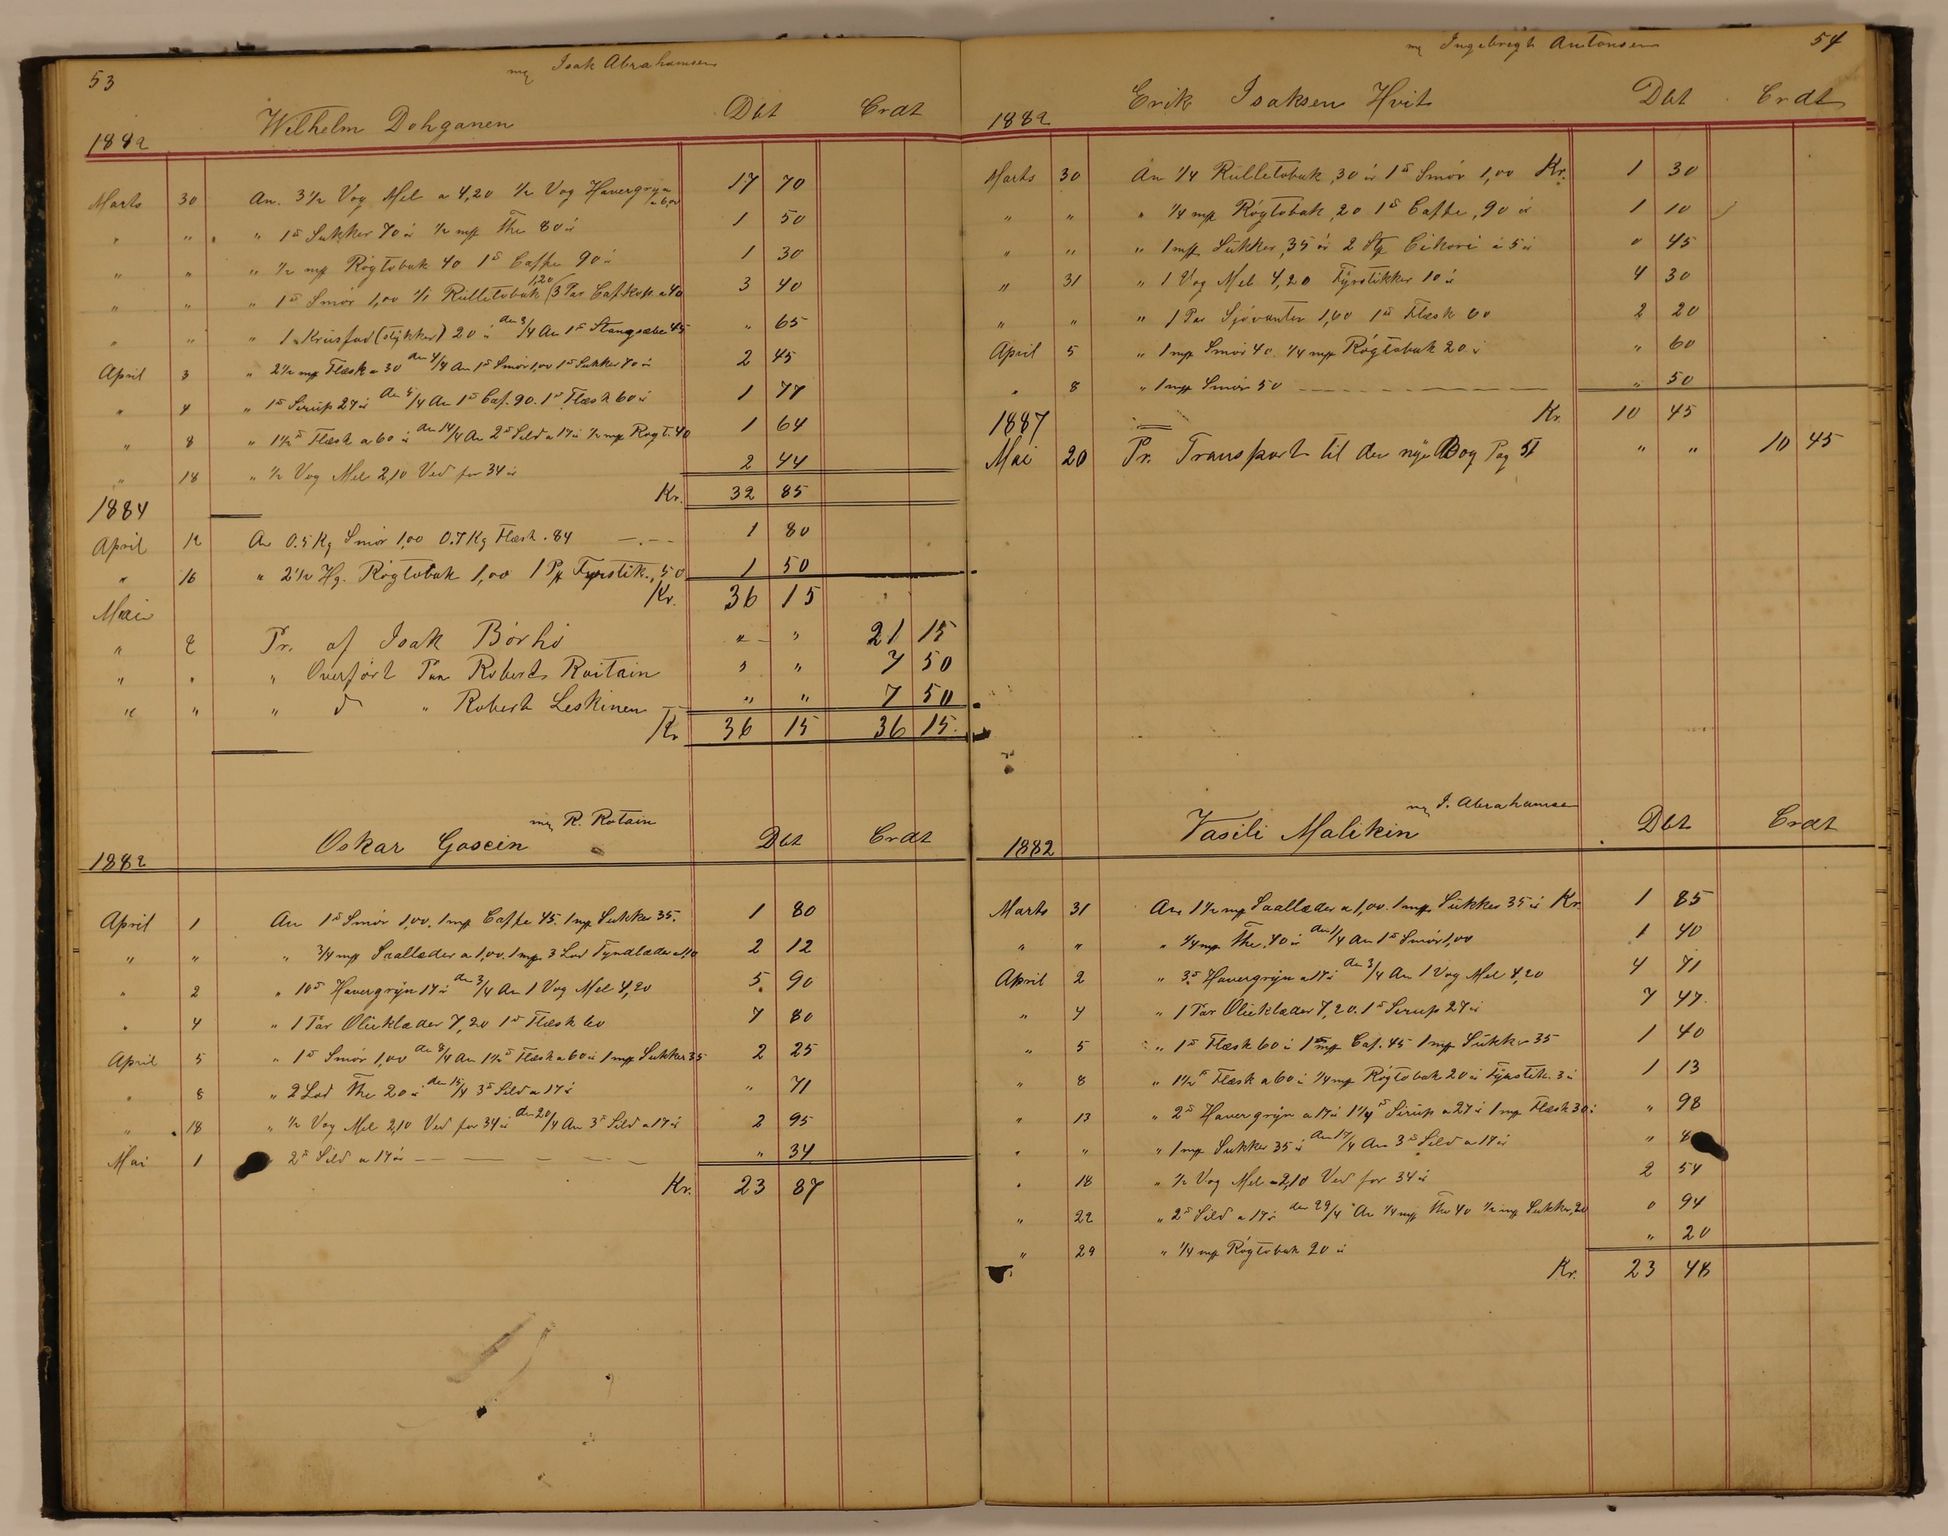 53
Isak Abrahamsen
Wilhelm Dohganen Dbt Crdt
1882
Marts 30 An. 3 1/2 Vog Mel a 4,20 1/2 Vog Havergryn a 6,00 17 70
" " " 1 ℔ Sukker 70 ör 1/2 mp The 80 ör 1 50
" " " 1/2 mp Rögtobak 40 1 ℔ Caffe 90 ör 1 30
" " " 1 ℔ Smör 1,00 1/1 Rulletobak 1,20 (3 Par Caf. Kop. a 40 3 40
" " " 1 Krusfad (stykker) 20 ör den 3/4 An 1 ℔ Stangsæbe 45 " 65
April 3 " 2 1/2 mp Flæsk a 30 den 4/4 An 1 ℔ Smör 1,00 1 ℔ Sukker 70 ör 2 45
" 4 " 1 ℔ Sirup 27 ör den 5/4 An 1 ℔ Caf. 90. 1 ℔ Flæsk 60 ör 1 77
" 8 " 1 1/2 ℔ Flæsk a 60 ör den 14/4 An 2 ℔ Sild a 17 ör 1/2 mp Rögt. 40 1 64
" 18 " 1/2 Vog Mel 2,10 Ved for 34 ör 2 44
Kr. 32 85
1884
April 12 An 0.5 Kg Smör 1,00 0.7 Kg Flæsk . 84 1 80
" 16 " 2 1/2 Hg. Rögtobak 1,00 1 Pk Fyrstik., 50 1 50
Kr. 36 15
Mai
" 2 Pr. af Isak Börhö " " 21 15
" " " Overfört Paa Roberts Roitain " " 7 50
" " " do " Robert Leskinen " " 7 50
Kr 36 15 36 15
R. Rotain
Oskar Gosein Dbt Crdt
1882
April 1 An 1 ℔ Smör 1,00. 1 mp Caffe 45. 1 mp Sukker 35. 1 80
" " " 3/4 mp Saallæder a 1,00. 1 mp 3 Lod Tyndlæder a 1,10 2 12
" 2 " 10 ℔ Havergryn 17 ör den 3/4 An 1 Vog Mel 4,20 5 90
" 4 " 1 Par Olieklæder 7,20 1 ℔ Flæsk 60 7 80
April 5 " 1 ℔ Smör 1,00 den 8/4 An 1 1/2 ℔ Flæsk a 60 ör 1 mp Sukker 35 2 25
" 8 " 2 Lod The 20 ör den 15/4 3 ℔ Sild a 17 ör " 71
" 18 " 1/2 Vog Mel 2,10 Ved for 34 ör den 20/4 An 3 ℔ Sild a 17 ör 2 95
Mai 1 2 ℔ Sild a 17 ör " 34
Kr. 23 87
54
Ingebregt Antonsen
Erik Isaksen Hvit Dbt Crdt
1882
Marts 30 An 1/4 Rulletobak, 30 ör 1 ℔ Smör 1,00 Kr. 1 30
" " " 1/4 mp Rögtobak, 20 1 ℔ Caffe, 90 ör 1 10
" " " 1 mp Sukker, 35 ör 2 Stp Cikori á 5 ör 0 45
" 31 " 1 Vog Mel 4,20 Fyrstikker 10 ör 4 30
" " " 1 Par Sjövanter 1,60 1 ℔ Flæsk 60 2 20
April 5 " 1 mp Smör 40. 1/4 mp Rögtobak 20 ör " 60
" 8 " 1 mp Smör 50 " 50
Kr. 10 45
1887
Mai 20 Pr. Transport til den nye Bog Pag 51 " " 10 45
I. Abrahamsen
Vasili Malikin Dbt Crdt
1882
Marts 31 An 1 1/2 mp Saallæder a 1,00. 1 mp Sukker 35 ör Kr. 1 85
" " " 1/4 mp The, 40 ör den 1/4 An 1 ℔ Smör 1,00 1 40
April 2 " 3 ℔ Havergryn a 17 ör den 3/4 An 1 Vog Mel 4,20 4 71
" 4 " 1 Par Olieklæder 7,20. 1 ℔ Sirup 27 ör 7 47
" 5 " 1 ℔ Flæsk 60 ör 1 mp Caf. 45 1 mp Sukker 35 1 40
" 8 " 1 1/2 ℔ Flæsk a 60 ör 1/4 mp Rögtobak 20 ör Fyrstik. 3 ör 1 13
" 13 " 2 ℔ Havergryn a 17 ör 1 1/4 ℔ Sirup a 27 ör 1 mp Flæsk 30 ör " 98
" " " 1 mp Sukker 35 ör den 17/4 An 3 ℔ Sild a 17 ör "
" 18 " 1/2 Vog Mel a 2,10 Ved for 34 ör 2 54
" 22 " 2 ℔ Sild a 17 ör den 29/4 An 1/4 mp The 40 1/2 mp Sukker, 20 0 94
" 29 " 1/4 mp Rögtobak 20 ör " 20
Kr. 23 48